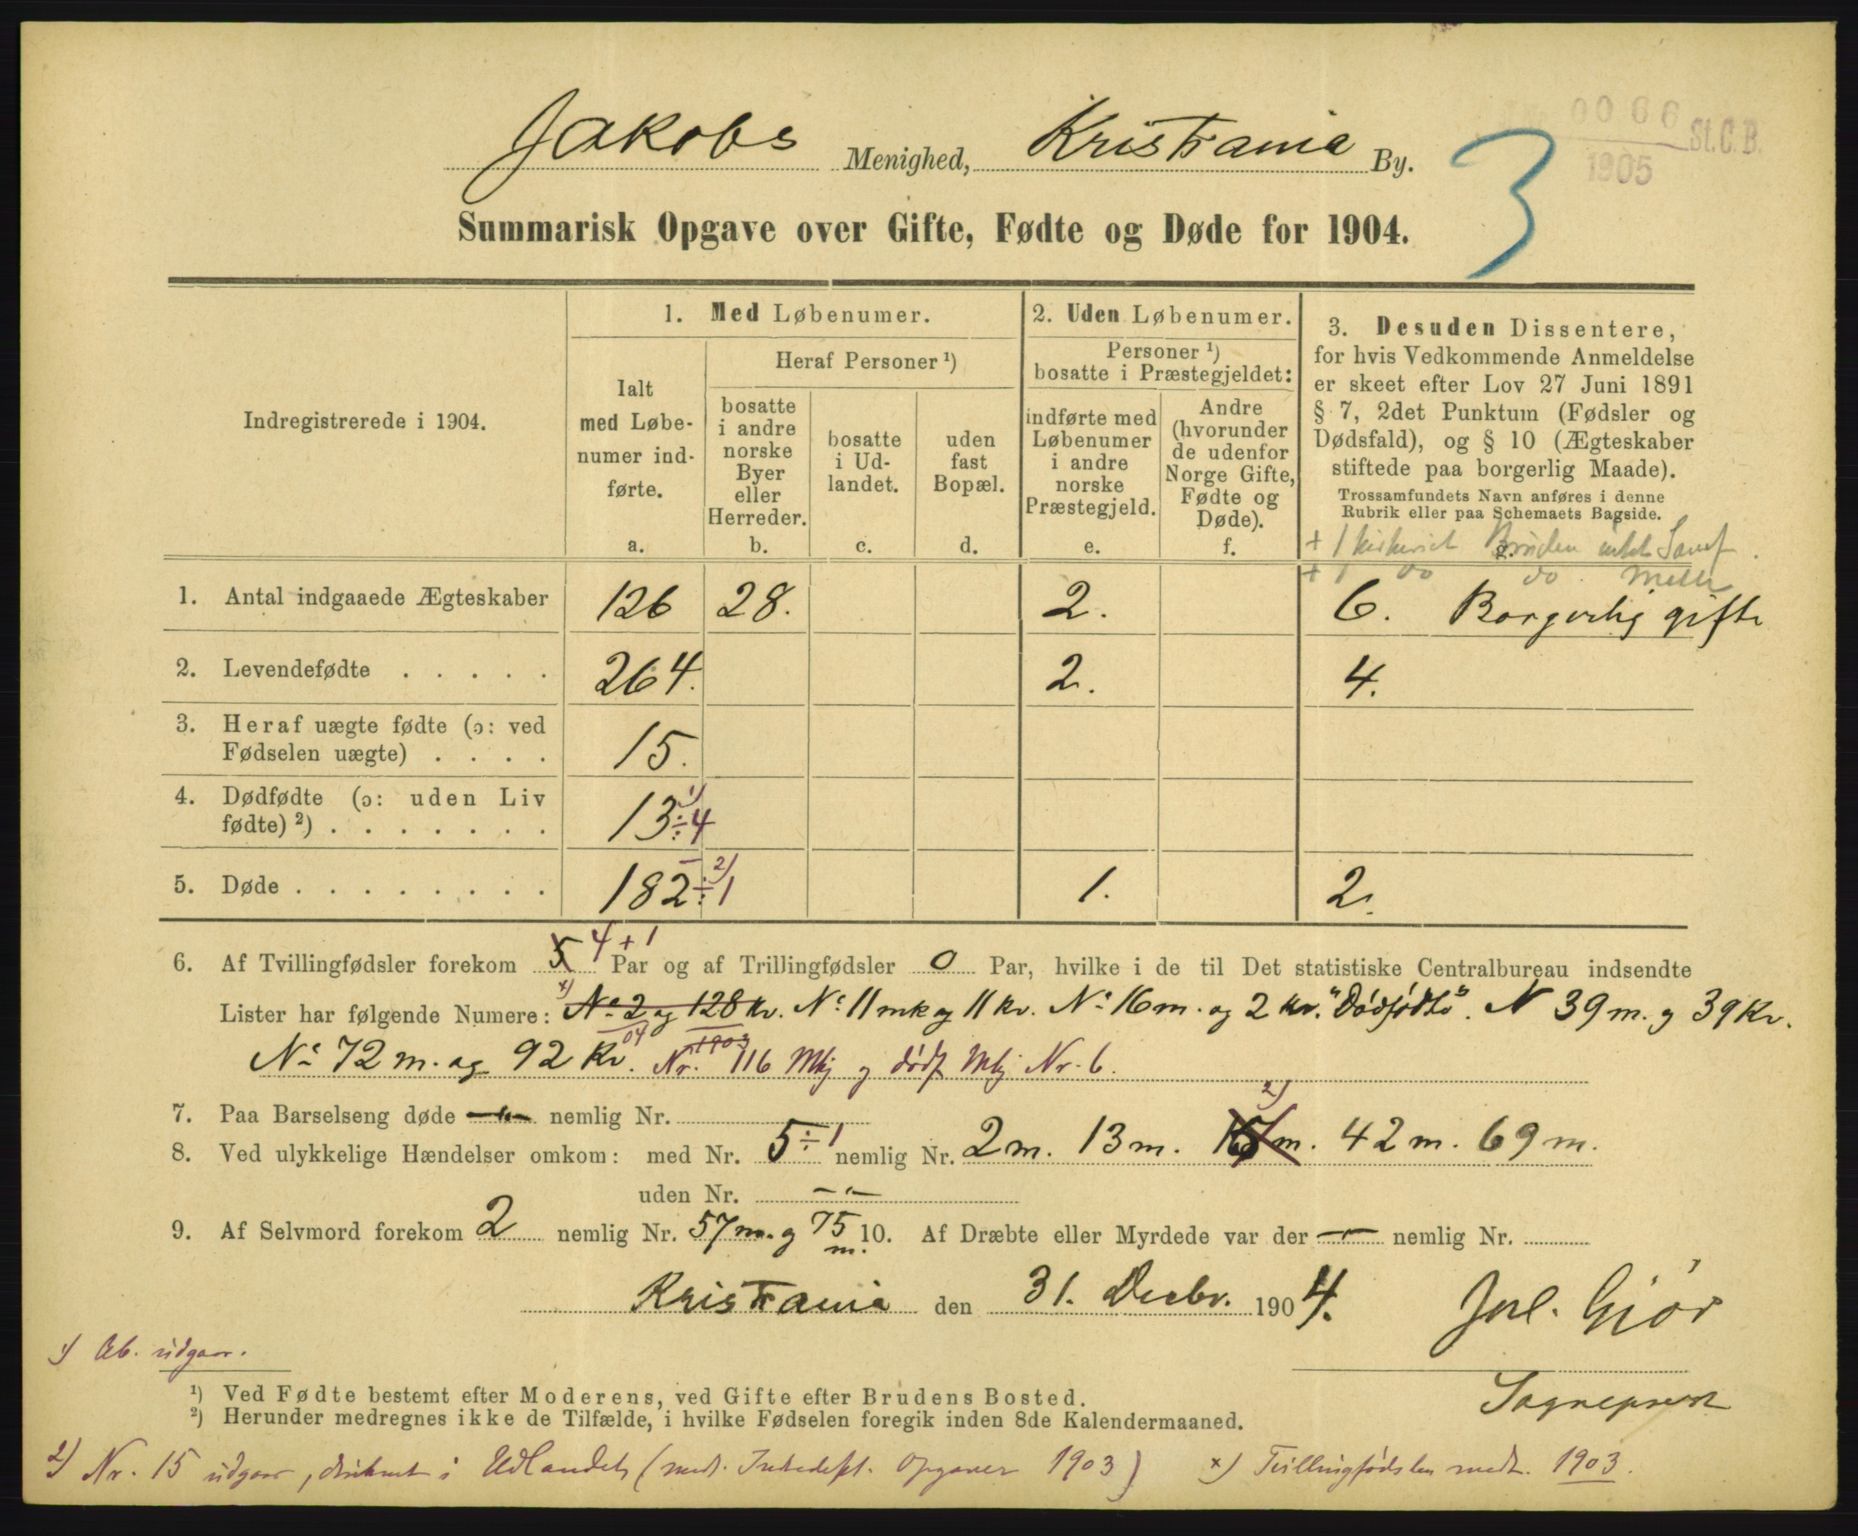 0066 St.C.B.
1905
Jakobs Menighed, Kristiania By.
3
Summarisk Opgave over Gifte, Fødte og Døde for 1904.
Indregistrerede i 1904.
1. Med Løbenumer.
Ialt med Løbe-numer ind-førte.
a.
Heraf Personer ¹)
bosatte i andre norske Byer eller Herreder.
b.
bosatte i Ud-landet.
c.
uden fast Bopæl.
d.
2. Uden Løbenumer.
Personer ¹)
bosatte i Præstegjeldet:
indførte med Løbenumer i andre norske Præstegjeld.
e.
Andre (hvorunder de udenfor Norge Gifte, Fødte og Døde).
f.
3. Desuden Dissentere,
for hvis Vedkommende Anmeldelse
er skeet efter Lov 27 Juni 1891
§ 7, 2det Punktum (Fødsler og
Dødsfald), og § 10 (Ægteskaber
stiftede paa borgerlig Maade).
Trossamfundets Navn anføres i denne
Rubrik eller paa Schemaets Bagside.
g.
+ 1 Bruden
+ 1 do do
1. Antal indgaaede Ægteskaber 126 28. 2. 6. Borgerlig gifte
2. Levendefødte . . . . . 264. 2. 4.
3. Heraf uægte fødte (ɔ: ved
Fødselen uægte) . . . . 15.
4. Dødfødte (ɔ: uden Liv
fødte) ²) . . . . . . . 13 ÷ 4 ¹)
5. Døde . . . . . . . . 182 ÷ 1 ²) 1. 2.
6. Af Tvillingfødsler forekom 5 4 + 1 Par og af Trillingfødsler 0 Par, hvilke i de til Det statistiske Centralbureau indsendte
Lister har følgende Numere: ×) No 2 og 128 Kv. No 11 mk og 11 kv. No 16 m. og 2 kv. "Dødfødte". N 39 m. g 39 Kv.
No 72 m. og 92 Kv. Nr. 116 Mkj og dødf Mkj Nr. 6.
7. Paa Barselseng døde —"— nemlig Nr.
8. Ved ulykkelige Hændelser omkom: med Nr. 5 ÷ 1 nemlig Nr. 2 m. 13 m. 15 m. ²) 42 m. 69 m.
uden Nr. —"—
9. Af Selvmord forekom 2 nemlig Nr. 57 m. g 75 m. 10. Af Dræbte eller Myrdede var der — nemlig Nr.
Kristiania den 31. Decbr. 1904.
Joel. Gjør
Sognepræst
¹) Ab. udgaar.
¹) Ved Fødte bestemt efter Moderens, ved Gifte efter Brudens Bosted.
²) Herunder medregnes ikke de Tilfælde, i hvilke Fødselen foregik inden 8de Kalendermaaned.
2) Nr. 15 udgaar, druknet i Udlandet (medt. Opgaver 1903)
×) Tvillingfødslen medt. 1903.